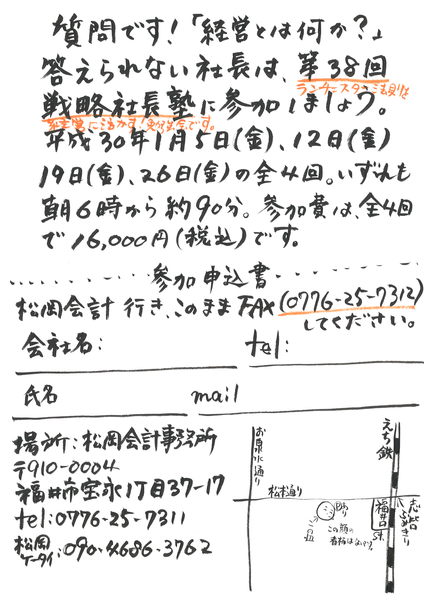 質問です!「経営とは何か?」
答えられない社長は、第38回
ランチェスター法則を
戦略社長塾に参加しましょう。
経営に活かす!勉強会です。
平成30年1月5日(金)、12日(金)
19日(金)、26日(金)の全4回。いずれも
朝6時から約90分。参加費は、全4回
で16,000円(税込)です。
参加申込書
松岡会計 行き、このまま FAX (0776-25-7312)
してください。
会社名: tel:
氏名 mail
場所:松岡会計事務所
〒910-0004
福井市宝永1丁目37-17
tel:0776-25-7311
松岡ケータイ:090-4686-3762
お泉水通り
えち鉄
松本通り
福井口
St.
ココ
この顔の
看板